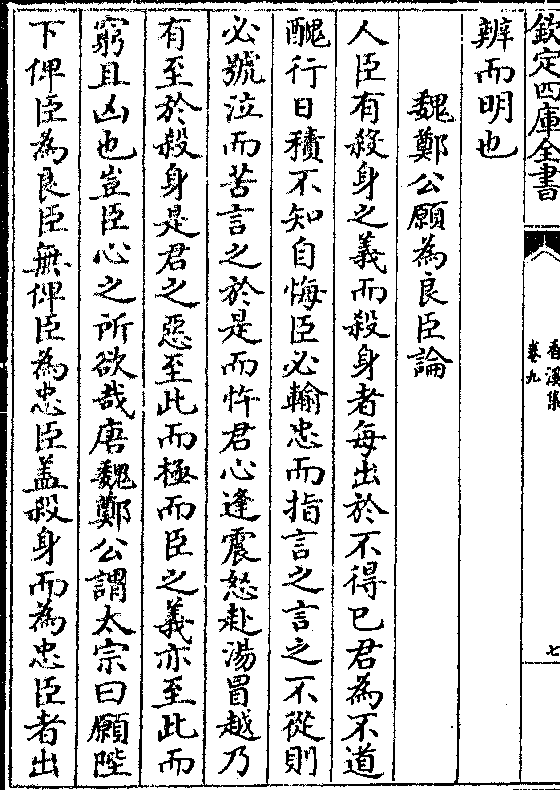 欽定四庫全書
香溪集
卷九
七
辨而明也
魏鄭公願為良臣論
人臣有殺身之義而殺身者每出於不得已君為不道
醜行日積不知自悔臣必輸忠而指言之言之不從則
必號泣而苦言之於是而忤君心逢震怒赴湯冒越乃
有至於殺身是君之惡至此而極而臣之義亦至此而
窮且凶也豈臣心之所欲哉唐魏鄭公謂太宗曰願陛
下俾臣為良臣無俾臣為忠臣蓋殺身而為忠臣者出